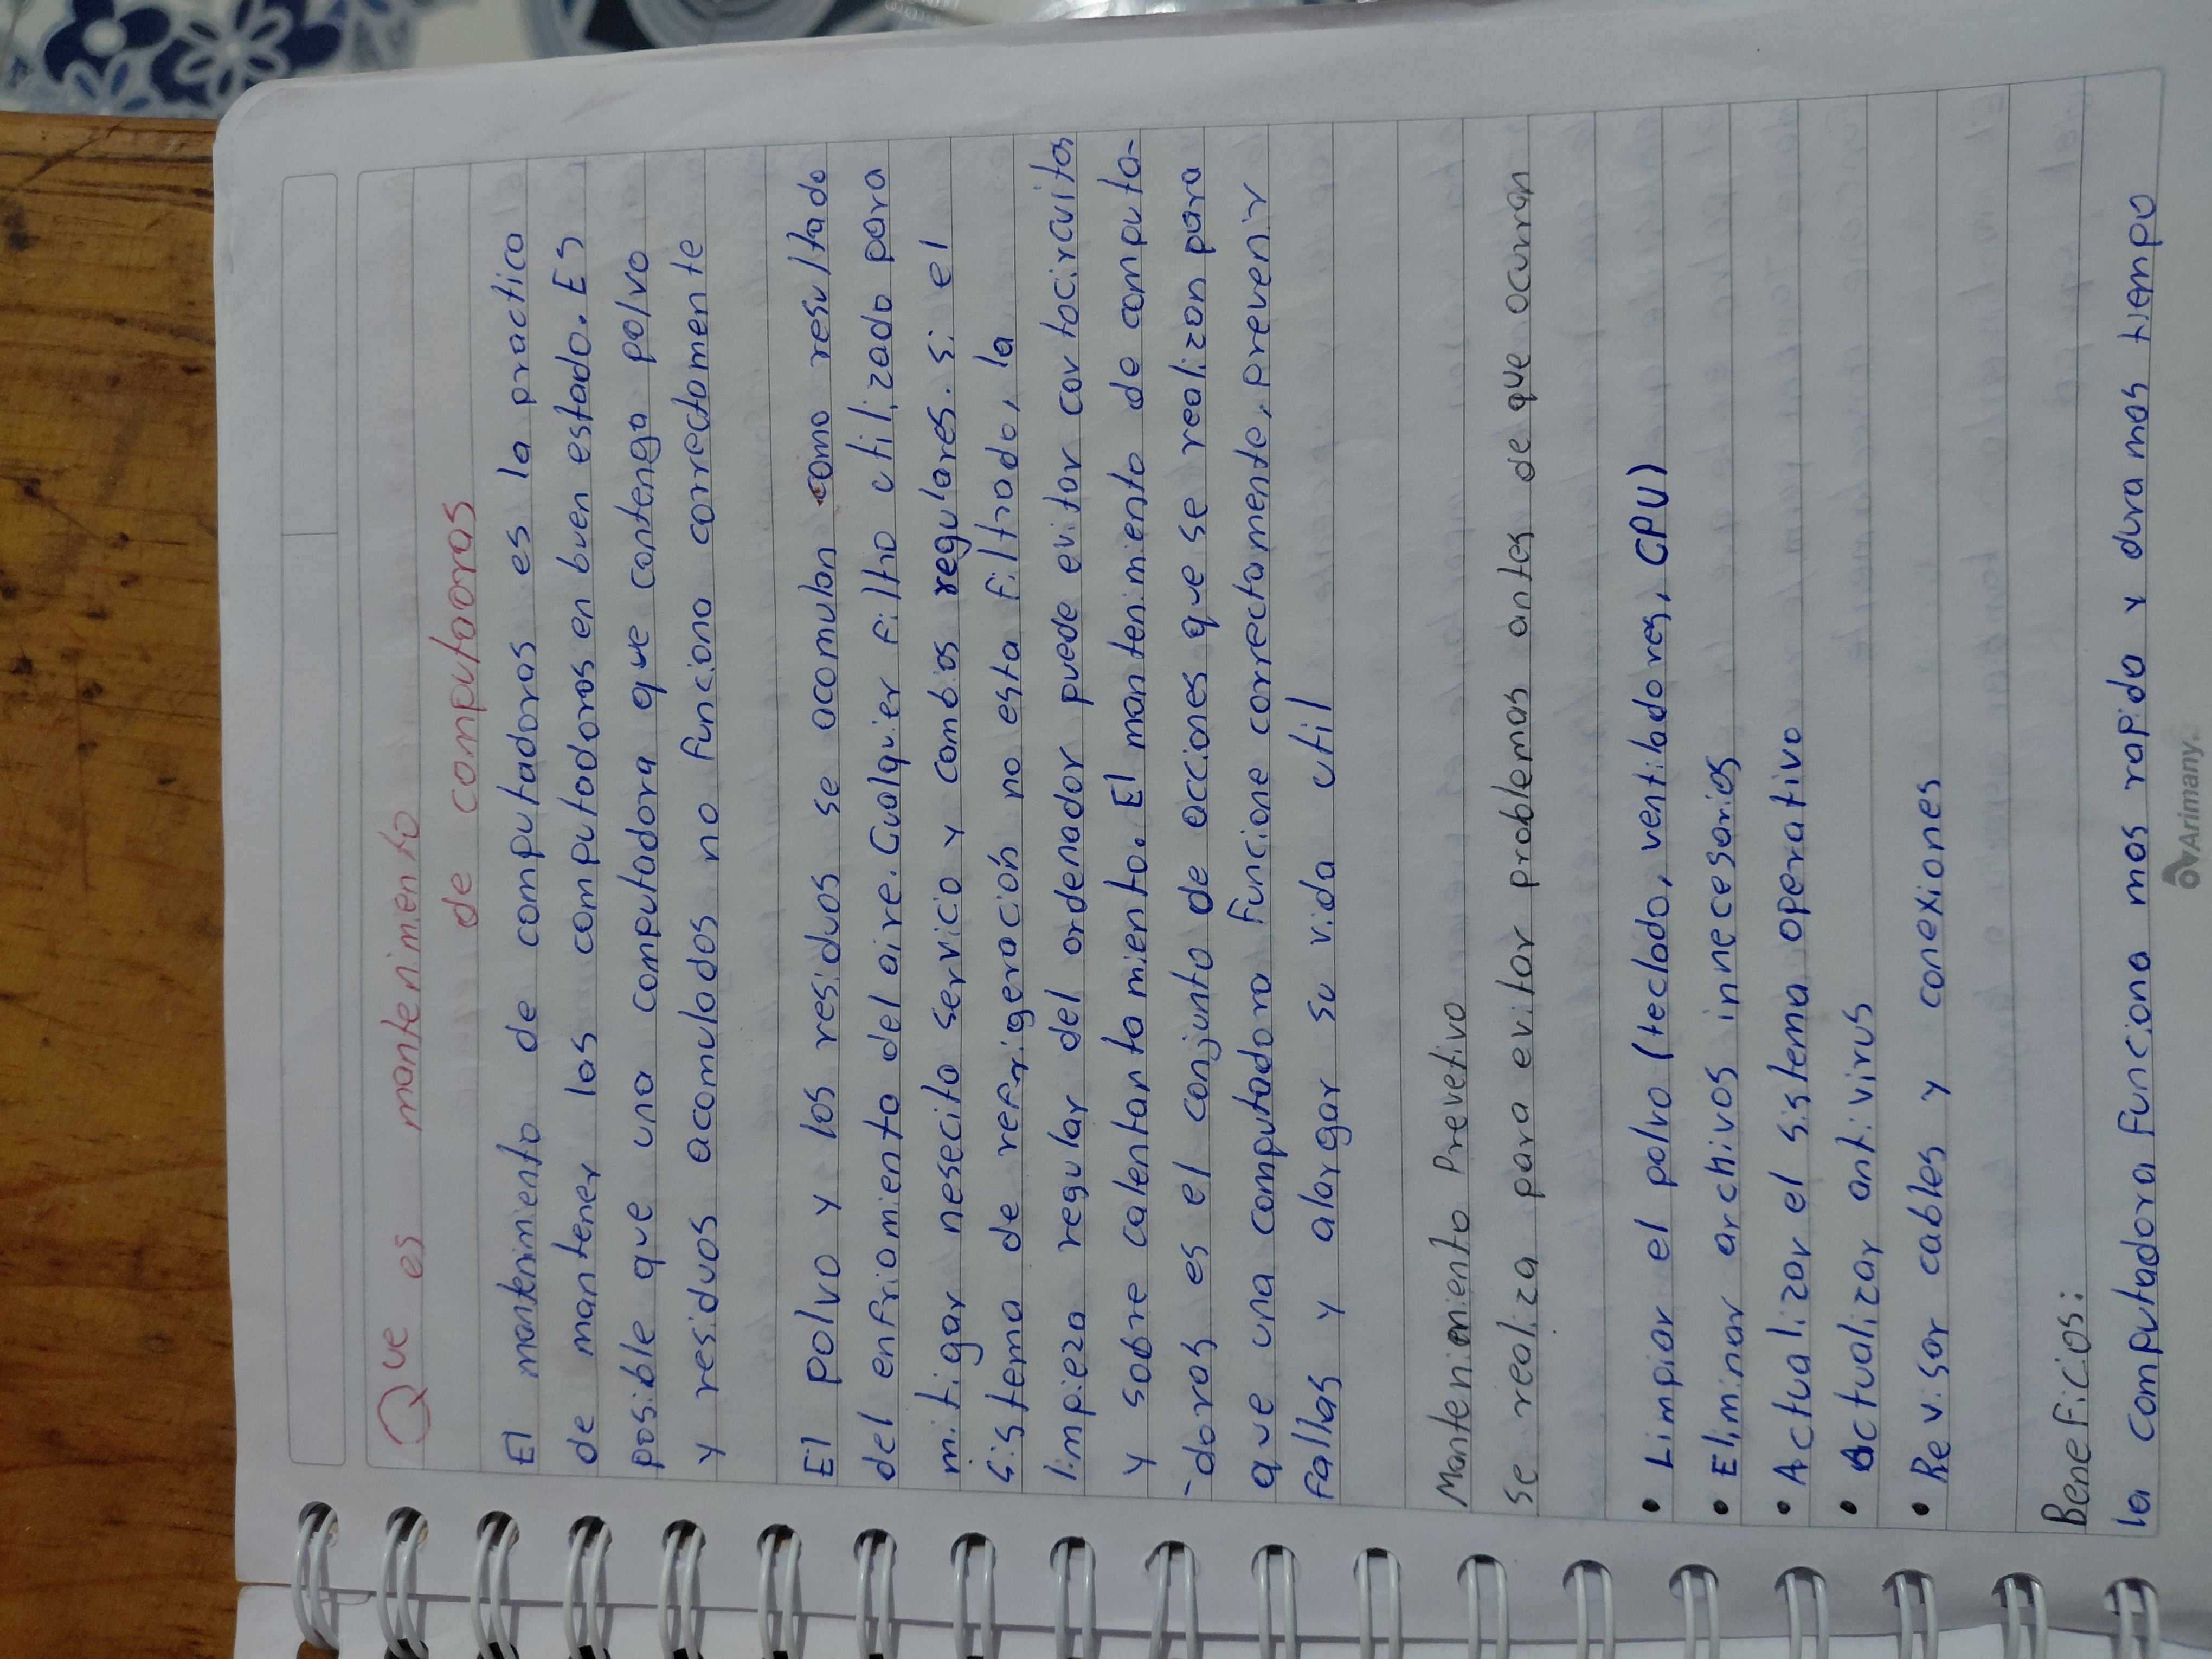 Que es mantenimiento
de computadoras
El mantenimiento de computadoras es la practica
de mantener las computadoras en buen estado. Es
posible que una computadora que contenga polvo
y residuos acomulados no funciona correctamente
El polvo y los residuos se acomulan como resultado
del enfriamiento del aire. Cualquier filtro utilizado para
mitigar nesecita servicio y cambios regulares. si el
sistema de refrigeración no esta filtrado, la
limpieza regular del ordenador puede evitar cortocircuitos
y sobre calentantamiento. El mantenimiento de computa-
-doras es el conjunto de acciones que se realizan para
que una computadora funcione correctamente, prevenir
fallas y alargar su vida util
Mantenimiento Prevetivo
se realiza para evitar problemas antes de que ocurran
• Limpiar el polvo (teclado, ventiladores, CPU)
• Eliminar archivos innecesarios
• Actualizar el sistema operativo
• Actualizar antivirus
• Revisar cables y conexiones
Beneficios:
la computadora funciona mas rapido y dura mas tiempo
Arimany.